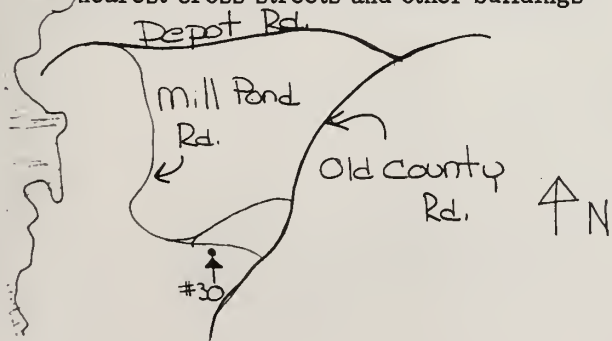 nearest cross streets and other buildings
Depot Rd.
Mill Pond
Rd.
Old County
Rd.
N
#30